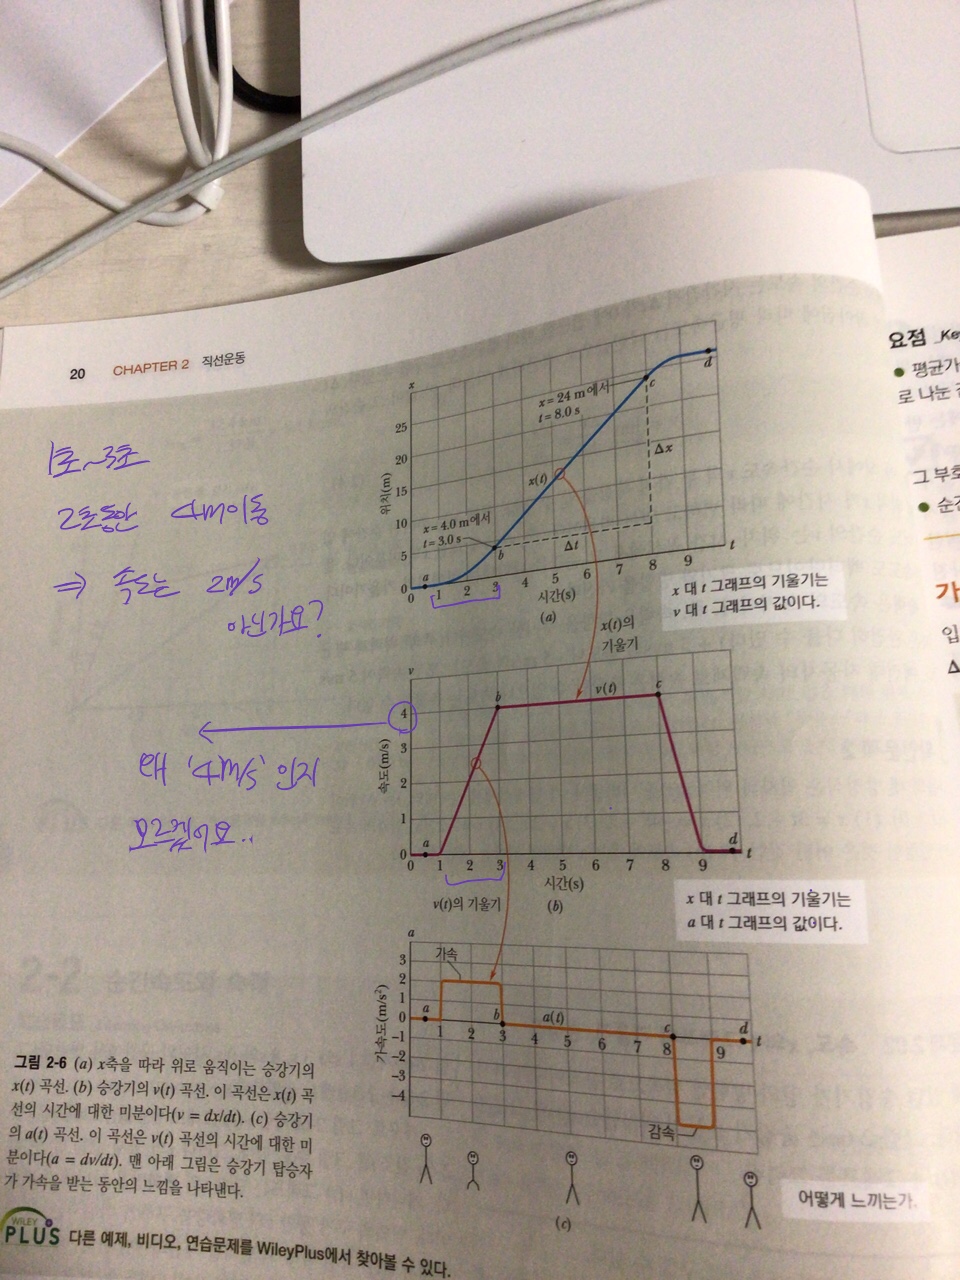 20 CHAPTER 2 직선운동
1초~3초
2초동안 4m이동
⇒ 속도는 2m/s
아닌가요?
왜 '4m/s' 인지
모르겠어요..
x
위치(m)
25
20
15
10
5
0
x = 24 m에서
t = 8.0 s
x = 4.0 m에서
t = 3.0 s
x(t)
a
b
c
d
Δx
Δt
1 2 3 4 5 6 7 8 9 t
시간(s)
(a)
x 대 t 그래프의 기울기는
v 대 t 그래프의 값이다.
x(t)의
기울기
v
속도(m/s)
4
3
2
1
0
a
b
v(t)
c
d
0 1 2 3 4 5 6 7 8 9 t
시간(s)
v(t)의 기울기
(b)
x 대 t 그래프의 기울기는
a 대 t 그래프의 값이다.
a
가속도(m/s²)
3
2
1
0
-1
-2
-3
-4
가속
a
b
a(t)
c
d
1 2 3 4 5 6 7 8 9 t
감속
(c)
어떻게 느끼는가.
그림 2-6 (a) x축을 따라 위로 움직이는 승강기의
x(t) 곡선. (b) 승강기의 v(t) 곡선. 이 곡선은 x(t) 곡
선의 시간에 대한 미분이다(v = dx/dt). (c) 승강기
의 a(t) 곡선. 이 곡선은 v(t) 곡선의 시간에 대한 미
분이다(a = dv/dt). 맨 아래 그림은 승강기 탑승자
가 가속을 받는 동안의 느낌을 나타낸다.
WILEY
PLUS 다른 예제, 비디오, 연습문제를 WileyPlus에서 찾아볼 수 있다.
요점 Key
평균가
로 나눈
그 부호
순간
가
입
Δ